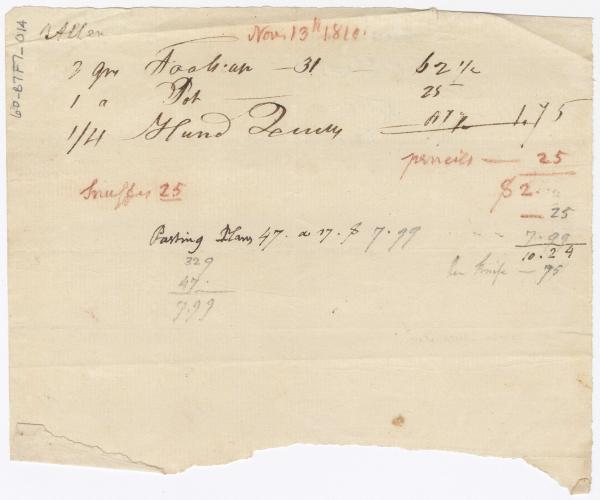 Allen Nov. 13th 1810.
2 qrs Foolscap — 31 — 62 1/2
1 " Pot — 25
1/4 Hund Quills 87 1/2 1.75
pencils — 25
Snuffs 25 $2.
— 25
Pasting Plans 47. a 17. $ 7.99 7.99
10.24
329
Pen Knife — 75
47.
7.99
60-87F7-014